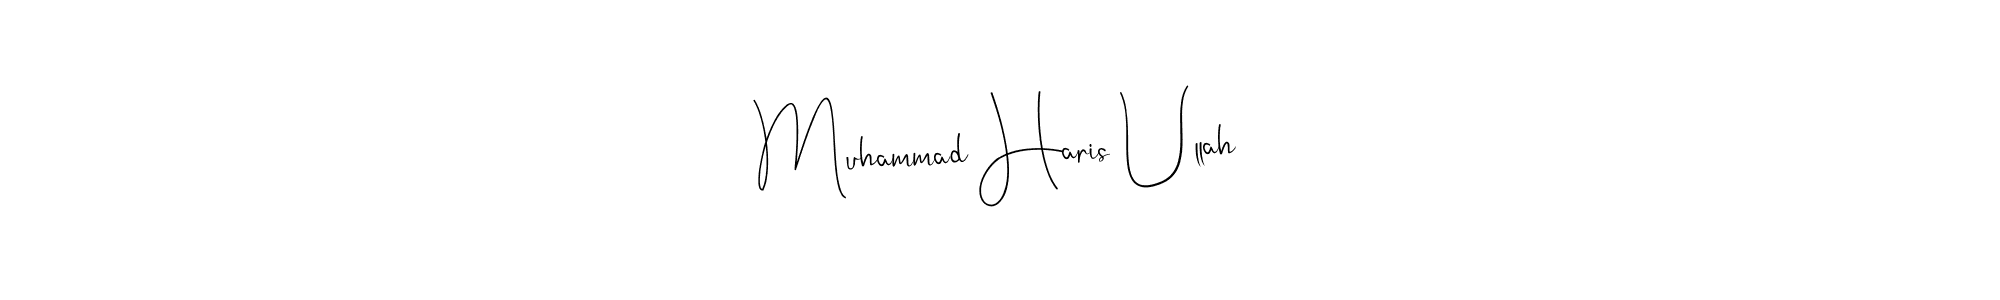 Muhammad Haris Ullah